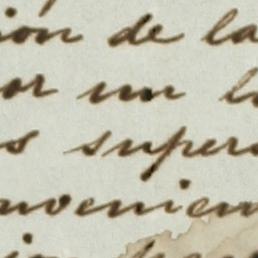 ión de la
or un l
s super
nvenien